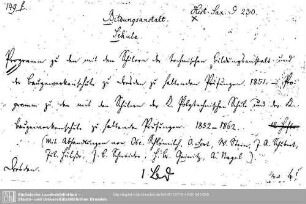 149 f.
Hist. Sax. D 230.
Bildungsanstalt.
Schule.
Programm zu den mit den Schülern der technischen Bildungsanstalt und
der Baugewerkenschule zu Dresden zu haltenden Prüfungen. 1851. Pro-
gramm zu den mit den Schülern der K. Polytechnischen Schule und der K.
Baugewerkenschule zu haltenden Prüfungen. 1852-1862.
(Mit Abhandlungen von Osc. Schlömilch, A. Fort, M. Stein, J. A. Schubert,
Jul. Hülße, J. E. Schneider, H. B. Geinitz, A. Nagel)
Dresden. 1 Bd 4°
Sächsische Landesbibliothek -
Staats- und Universitätsbibliothek Dresden